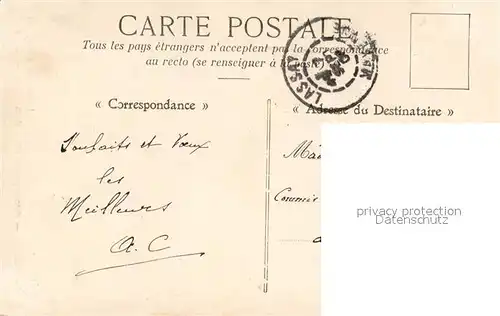 CARTE POSTALE
Tous les pays étrangers n'acceptent pas la correspondance
au recto (se renseigner à la poste)
LASSAY
« Correspondance »
« Adresse du Destinataire »
Souhaits et Vœux
les
Meilleurs
A. C
privacy protection
Datenschutz